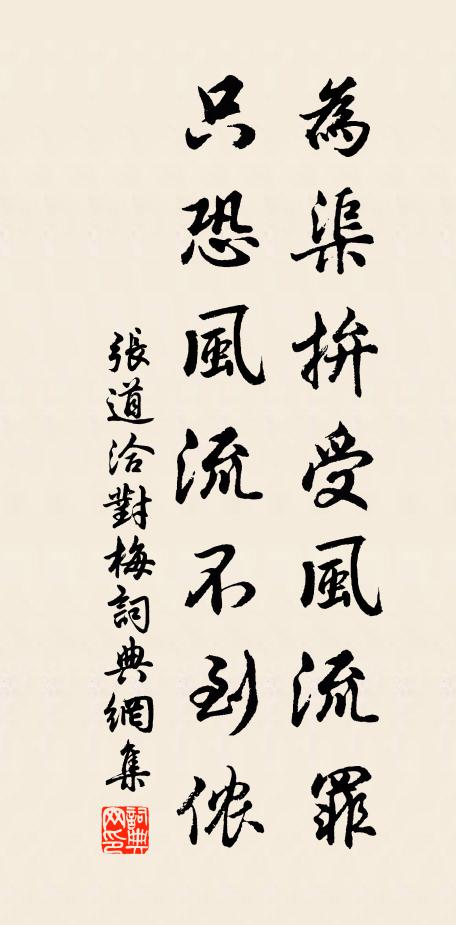 為渠拚受風流罪
只恐風流不到儂
張道洽對梅詞典網集
詞典
网印